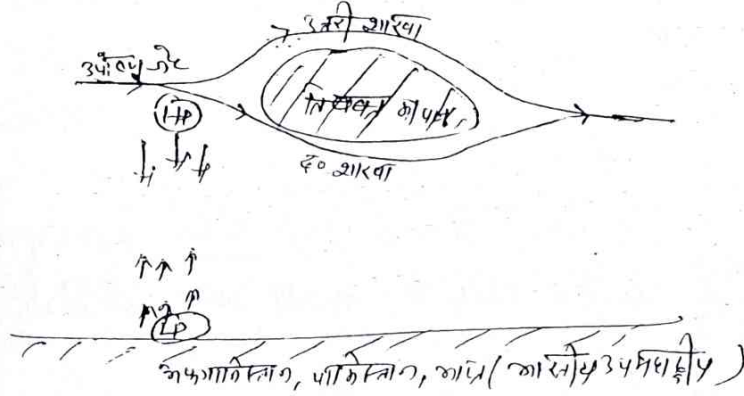 उत्तरी शाखा
उपोष्ण जेट
तिब्बत का पठार
HP
द० शाखा
LP
अफगानिस्तान, पाकिस्तान, भारत (भारतीय उपमहाद्वीप)